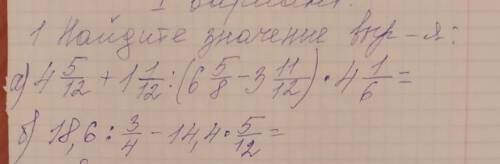 I вариант.
1 Найдите значение выр-я:
а) 4 5/12 + 1 1/12 : (6 5/8 - 3 11/12) · 4 1/6 =
б) 18,6 : 3/4 - 14,4 · 5/12 =